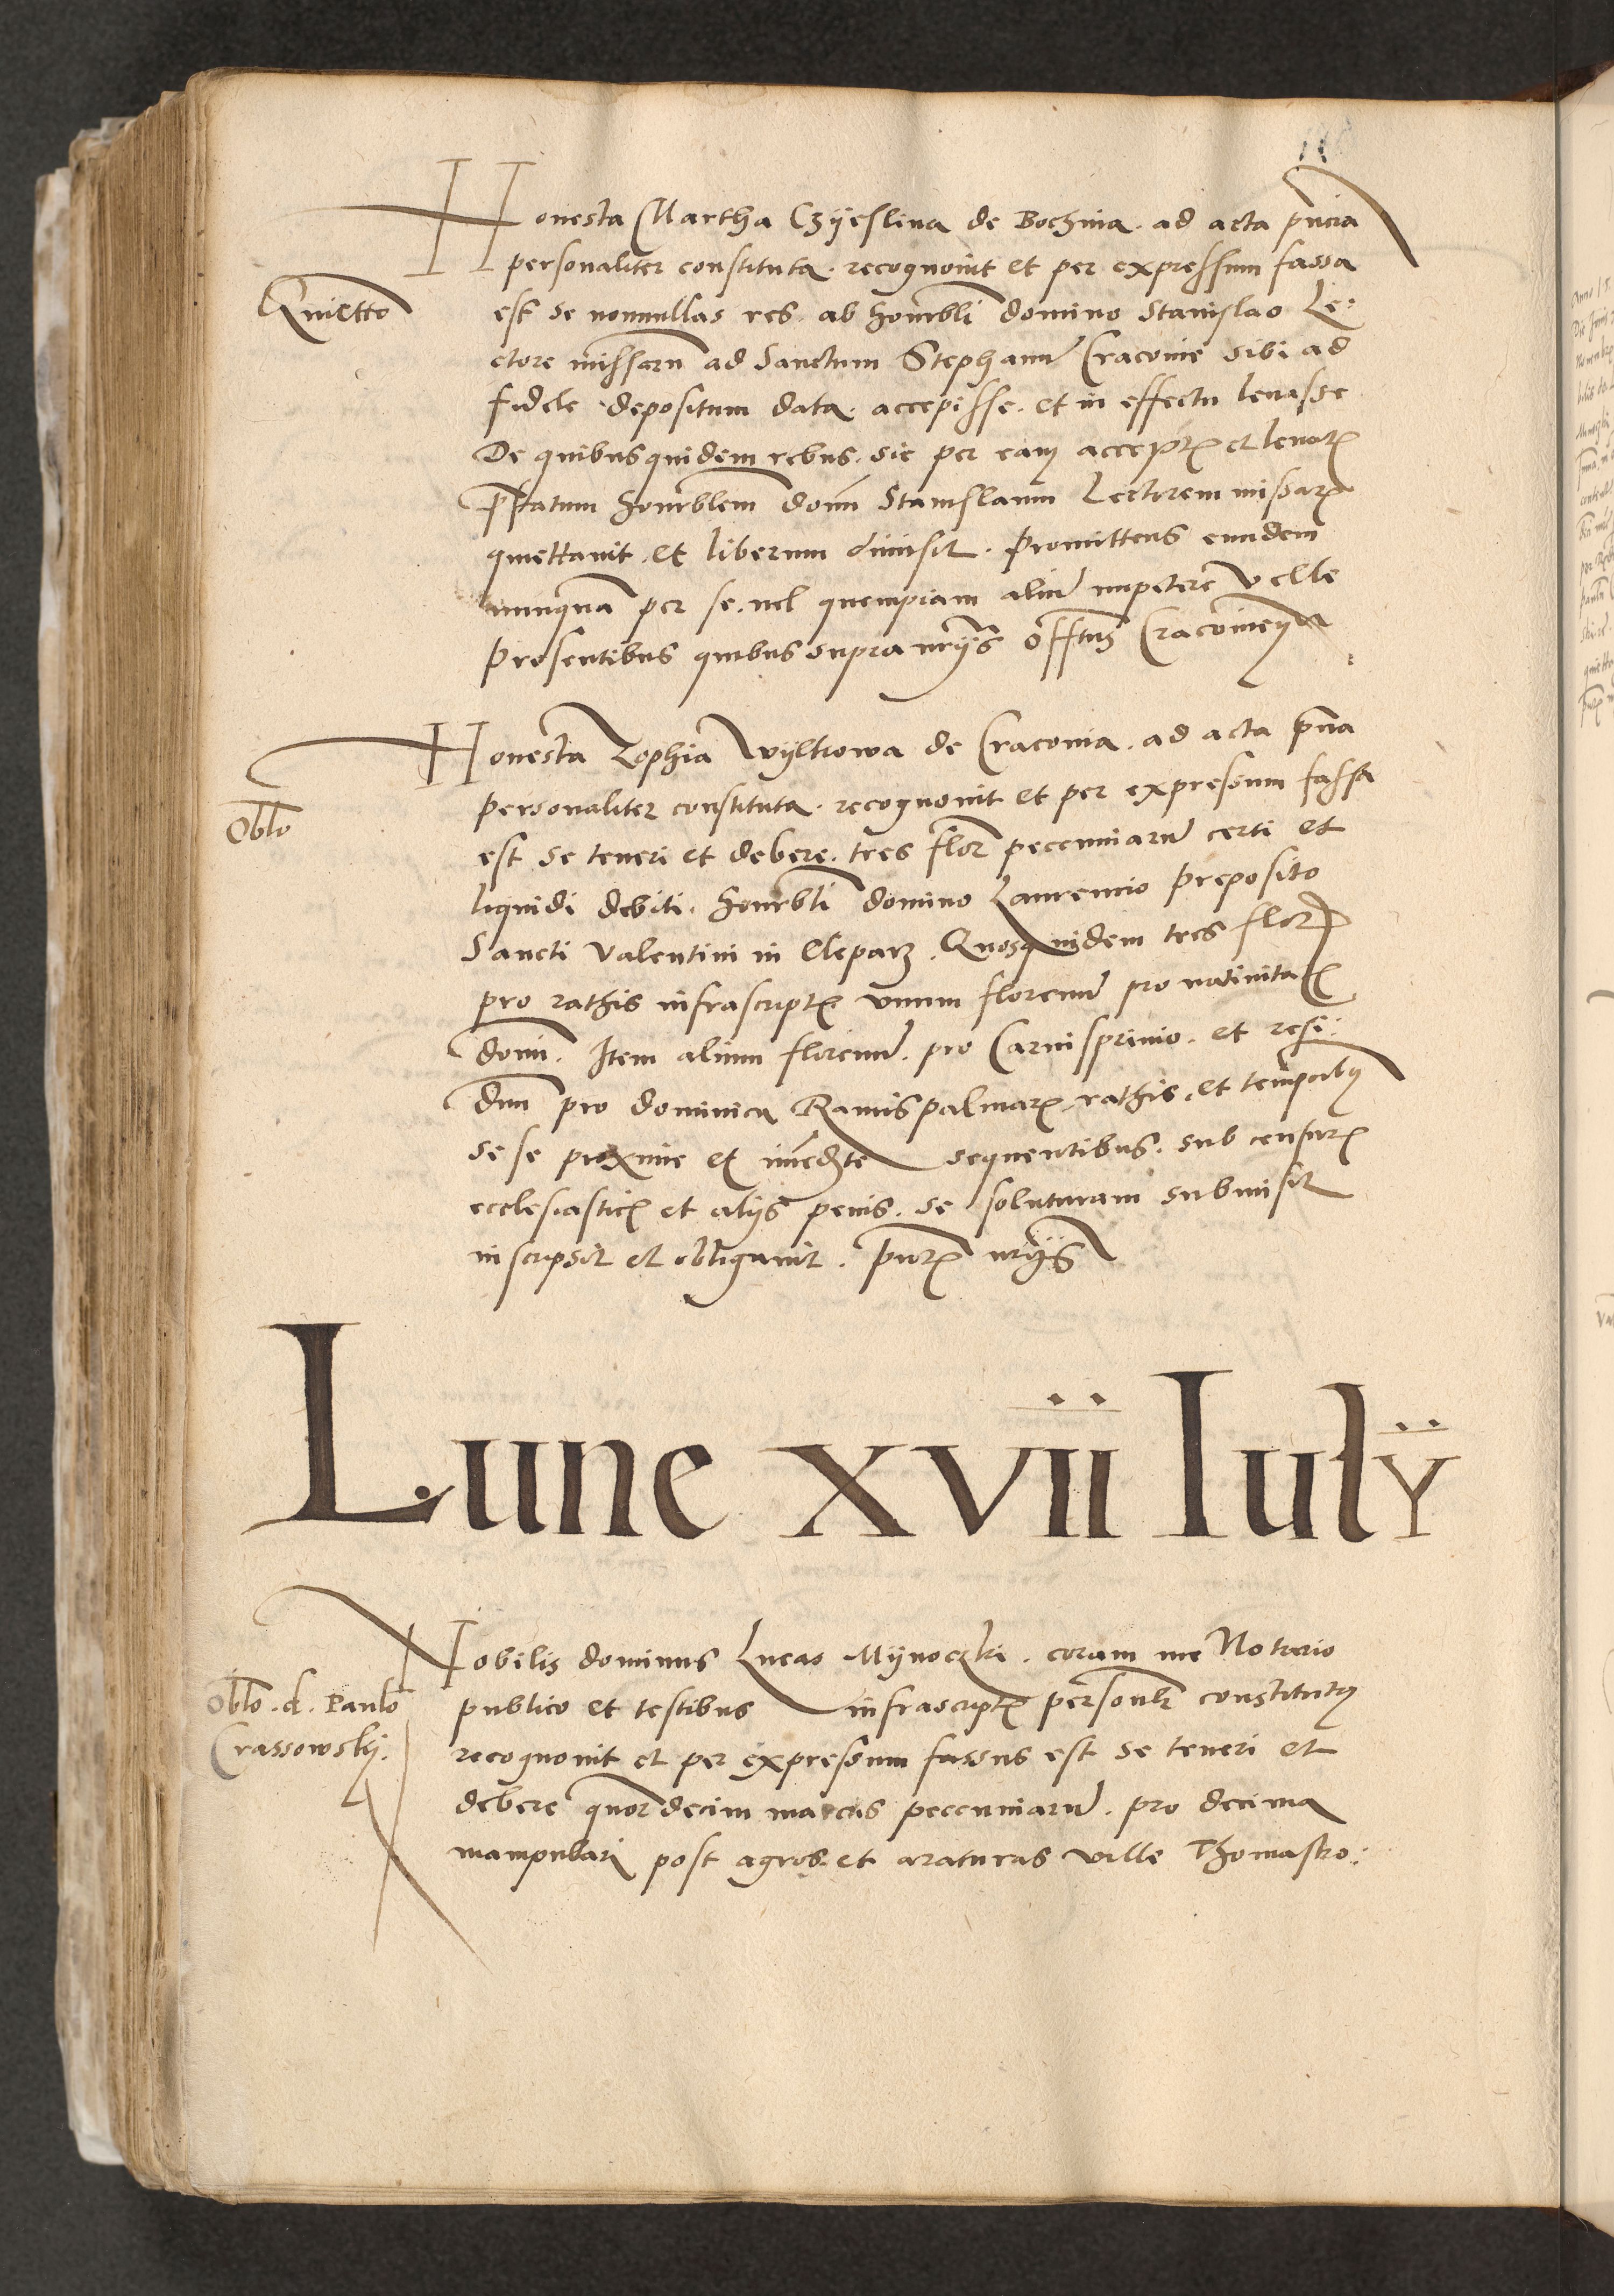 Honesta Martha Czÿeslina de Bochnia. ad acta pñcia
personaliter constituta. recognouit et per expressum fassa
Quietto
est se nonnullas res. ab honrbli domino Stanislao Le-
ctore missarũ ad Sanctum Stephanũ Cracouie sibi ad
fidele depositum data. accepisse. et in effectu leuasse
De quibusquidem rebus. sic per eam accept et leuat
pfatum honrblem dom̃ Stanislaum Lectorem missar
quiettauit. et liberum dimisit. Promittens eundem
nunquã per se. uel quempiam aliũ impetere velle
Presentibus quibus supra nrijs offtus Cracouien
Honesta Zophia Wyltrowa de Cracouia. ad acta pñcia
personaliter constituta. recognouit et per expressum fassa
Oblo
est se teneri et debere. tres flor pecuniarũ certi et
liquidi debiti. honrbli domino Laurencio preposito
Sancti Valentini in Cleparz. Quosquidem tres flor
pro rathis infrascript vnum florenũ pro natiuitat
domi. Item alium florenũ. pro Carnispriuio. et resi-
dũũ pro dominica Ramispalmar rathis. et temporibus
sese proxime et imediate sequentibus. sub censur
ecclesiastic et alijs penis. se soluturam submisit
inscripsit et obligauit. pñt nrijs
Lune xvii Iulÿ
Nobilis dominus Lucas Mÿnoczki. coram me Notario
Oblo. d. Paulo
publico et testibus infrascript personlr constitutus
Crassowskÿ.
recognouit et per expressum fassus est se teneri et
debere quordecim marcas pecuniarũ. pro decima
manipulari post agros. et araturas ville Thomasko-